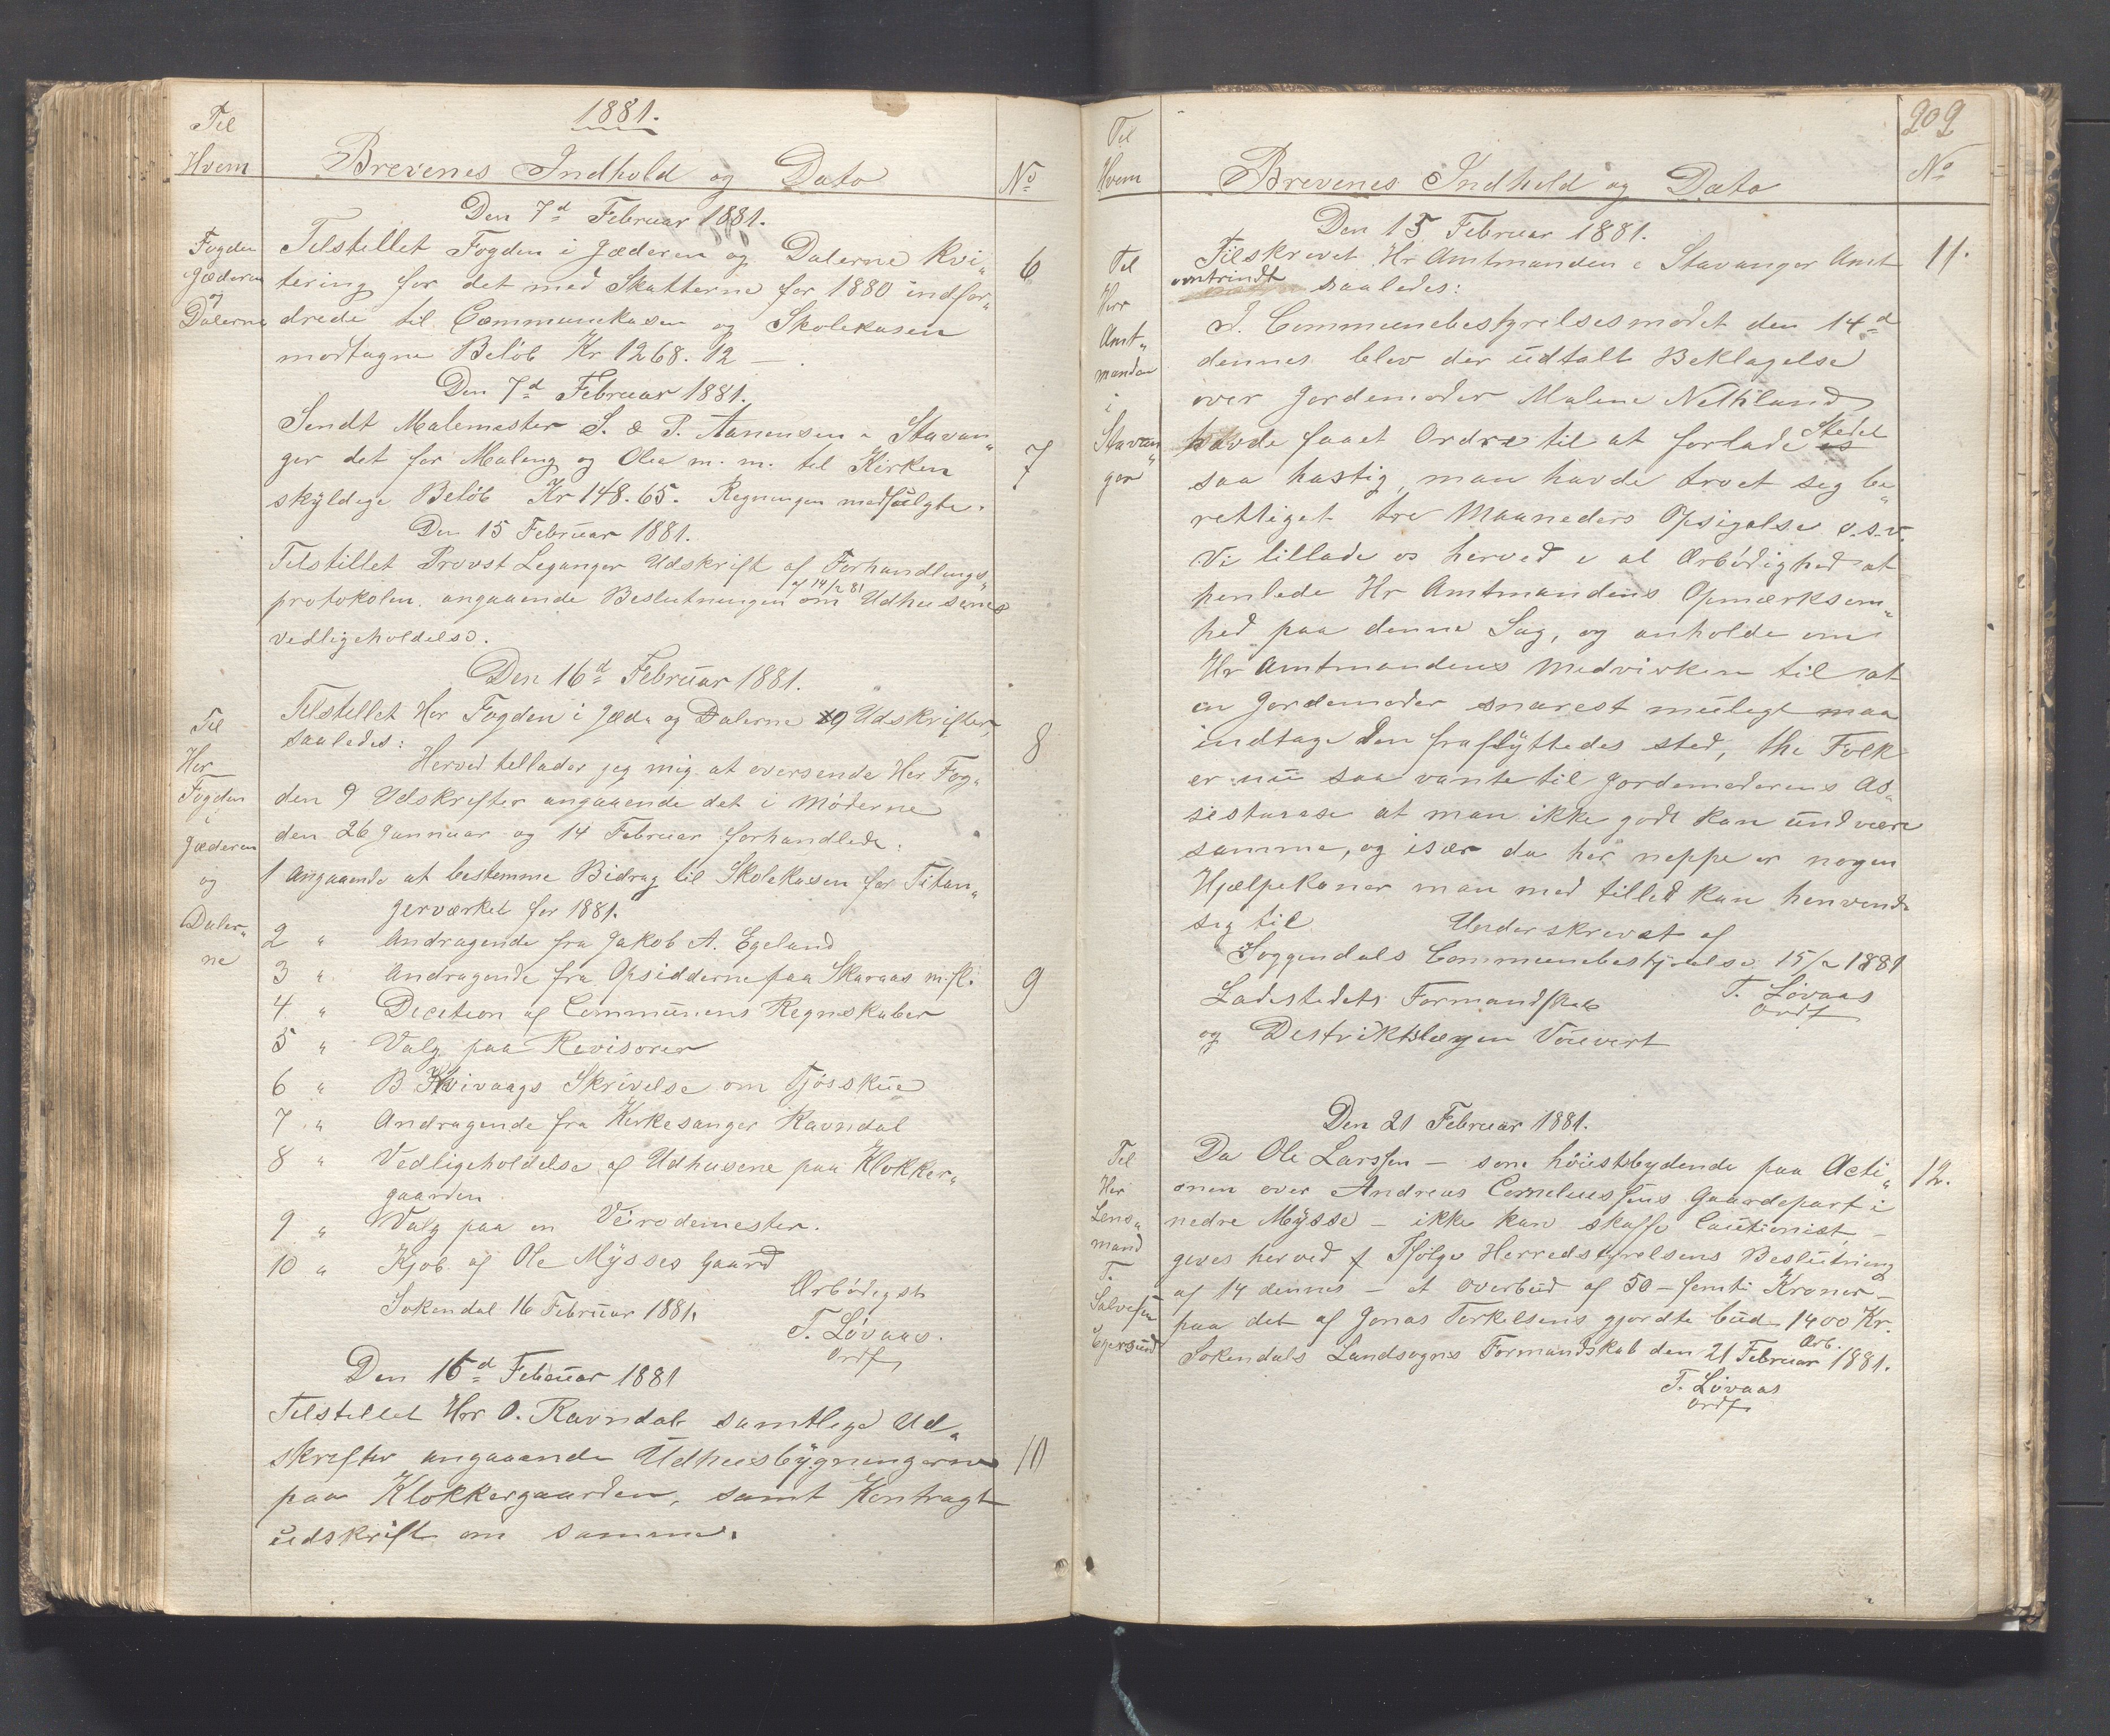 1881.
Til
Hvem
Brevenes Indhold og Dato
No
Den 7d Februar 1881.
Fogden
Jæderen
og
Dalerne
Tilstillet Fogden i Jæderen og Dalerne Kvi„
tering for det med Skatterne for 1880 indfor„
drede til Communekassen og Skolekassen
modtagne Beløb Kr 1268. 12 —
6
Den 7d Februar 1881.
Sendt Malemester S. & P. Aanensen i Stavan„
ger det for Maling og Olie m. m. til Kirken
skyldige Beløb Kr 148. 65. Regningen medfulgte.
7
Den 15 Februar 1881.
Tilstillet Provst Leganger Udskrift af Forhandlings„
protokolen angaaende Beslutningen af 14/2 81 om Udhusenes
vedligeholdelse.
8
Den 16d Februar 1881.
Til
Her
Fogden
i
Jæderen
og
Daler„
ne
Tilstillet Her Fogden i Jæd. og Dalerne 9 Udskrifter,
saaledes:
Herved tillader jeg mig at oversende Her Fog„
den 9 Udskrifter angaaende det i Møderne
den 26 Januar og 14 Februar forhandlede:
1 Angaaende at bestemme Bidrag til Skolekassen for Titan„
gerværket for 1881.
2 „ Andragende fra Jakob A. Egeland
3 „ Andragende fra Opsidderne paa Skaraas m.fl.
9
4 „ Decition af Communens Regnskaber
5 „ Valg paa Revisorer
6 „ B Hvivaags Skrivelse om Fjøsskue
7 „ Andragende fra Kirkesanger Ravndal
8 „ Vedligeholdelse af Udhusene paa Klokker„
gaarden
9 „ Valg paa en Veirodemester.
10 „ Kjøb af Ole Mysses Gaard
Ærbødigst
Sokendal 16 Februar 1881.
T. Løvaas.
Ordf
Den 16d Februar 1881
Tilstillet Hrr O. Ravndal samtlige Ud„
skrifter angaaende Udhusbygningerne
paa Klokkergaarden, samt Kontragt
udskrift om samme.
10
202
Til
Hvem
Brevenes Indhold og Dato
No
Den 15 Februar 1881.
Til
Herr
Amt„
manden
i
Stavan„
ger
Tilskrevet Hr Amtmanden i Stavanger Amt
omtrindt saaledes:
11.
I Communebestyrelsesmødet den 14d
dennes blev der udtalt Beklagelse
over Jordemoder Malene Netland
havde faaet Ordre til at forlade Stedet
saa hastig, man havde troet seg be„
rettiget tre Maaneders Opsigelse o.s.v.
Vi tillade os herved i al Ærbødighed at
henlede Hr Amtmandens Opmærksom„
hed paa denne Sag, og anholde om
Hr Amtmandens Medvirken til at
en Jordemoder snarest muligt maa
indtage den fraflyttedes sted, thi Folk
er nu saa vante til Jordemoderens As„
sistanse at man ikke godt kan undvære
samme, og især da her neppe er nogen
Hjælpekoner man med tillid kan henvende
seg til.
Underskrevet af
Soggendals Communebestyrelse, 15/2 1881
T. Løvaas
Ordf
Ladestedets Formandskab
og Destriktslægen
Den 21 Februar 1881.
Til
Her
Lens„
mand
T.
Salvesen
Egersund
Da Ole Larssen — som høiestbydende paa Acti„
onen over Andreas Corneliussens Gaardepart i
nedre Mysse — ikke kan skaffe Cautionist —
gives herved Ifølge Herredstyrelsens Beslutning
af 14 dennes — et Overbud af 50 — femti Kroner —
paa det af Jonas Torkelsens gjordte bud 1400 Kr.
Ærb.
Sokendals Landsogns Formandskab den 21 Februar 1881.
T. Løvaas
Ordf.
12.